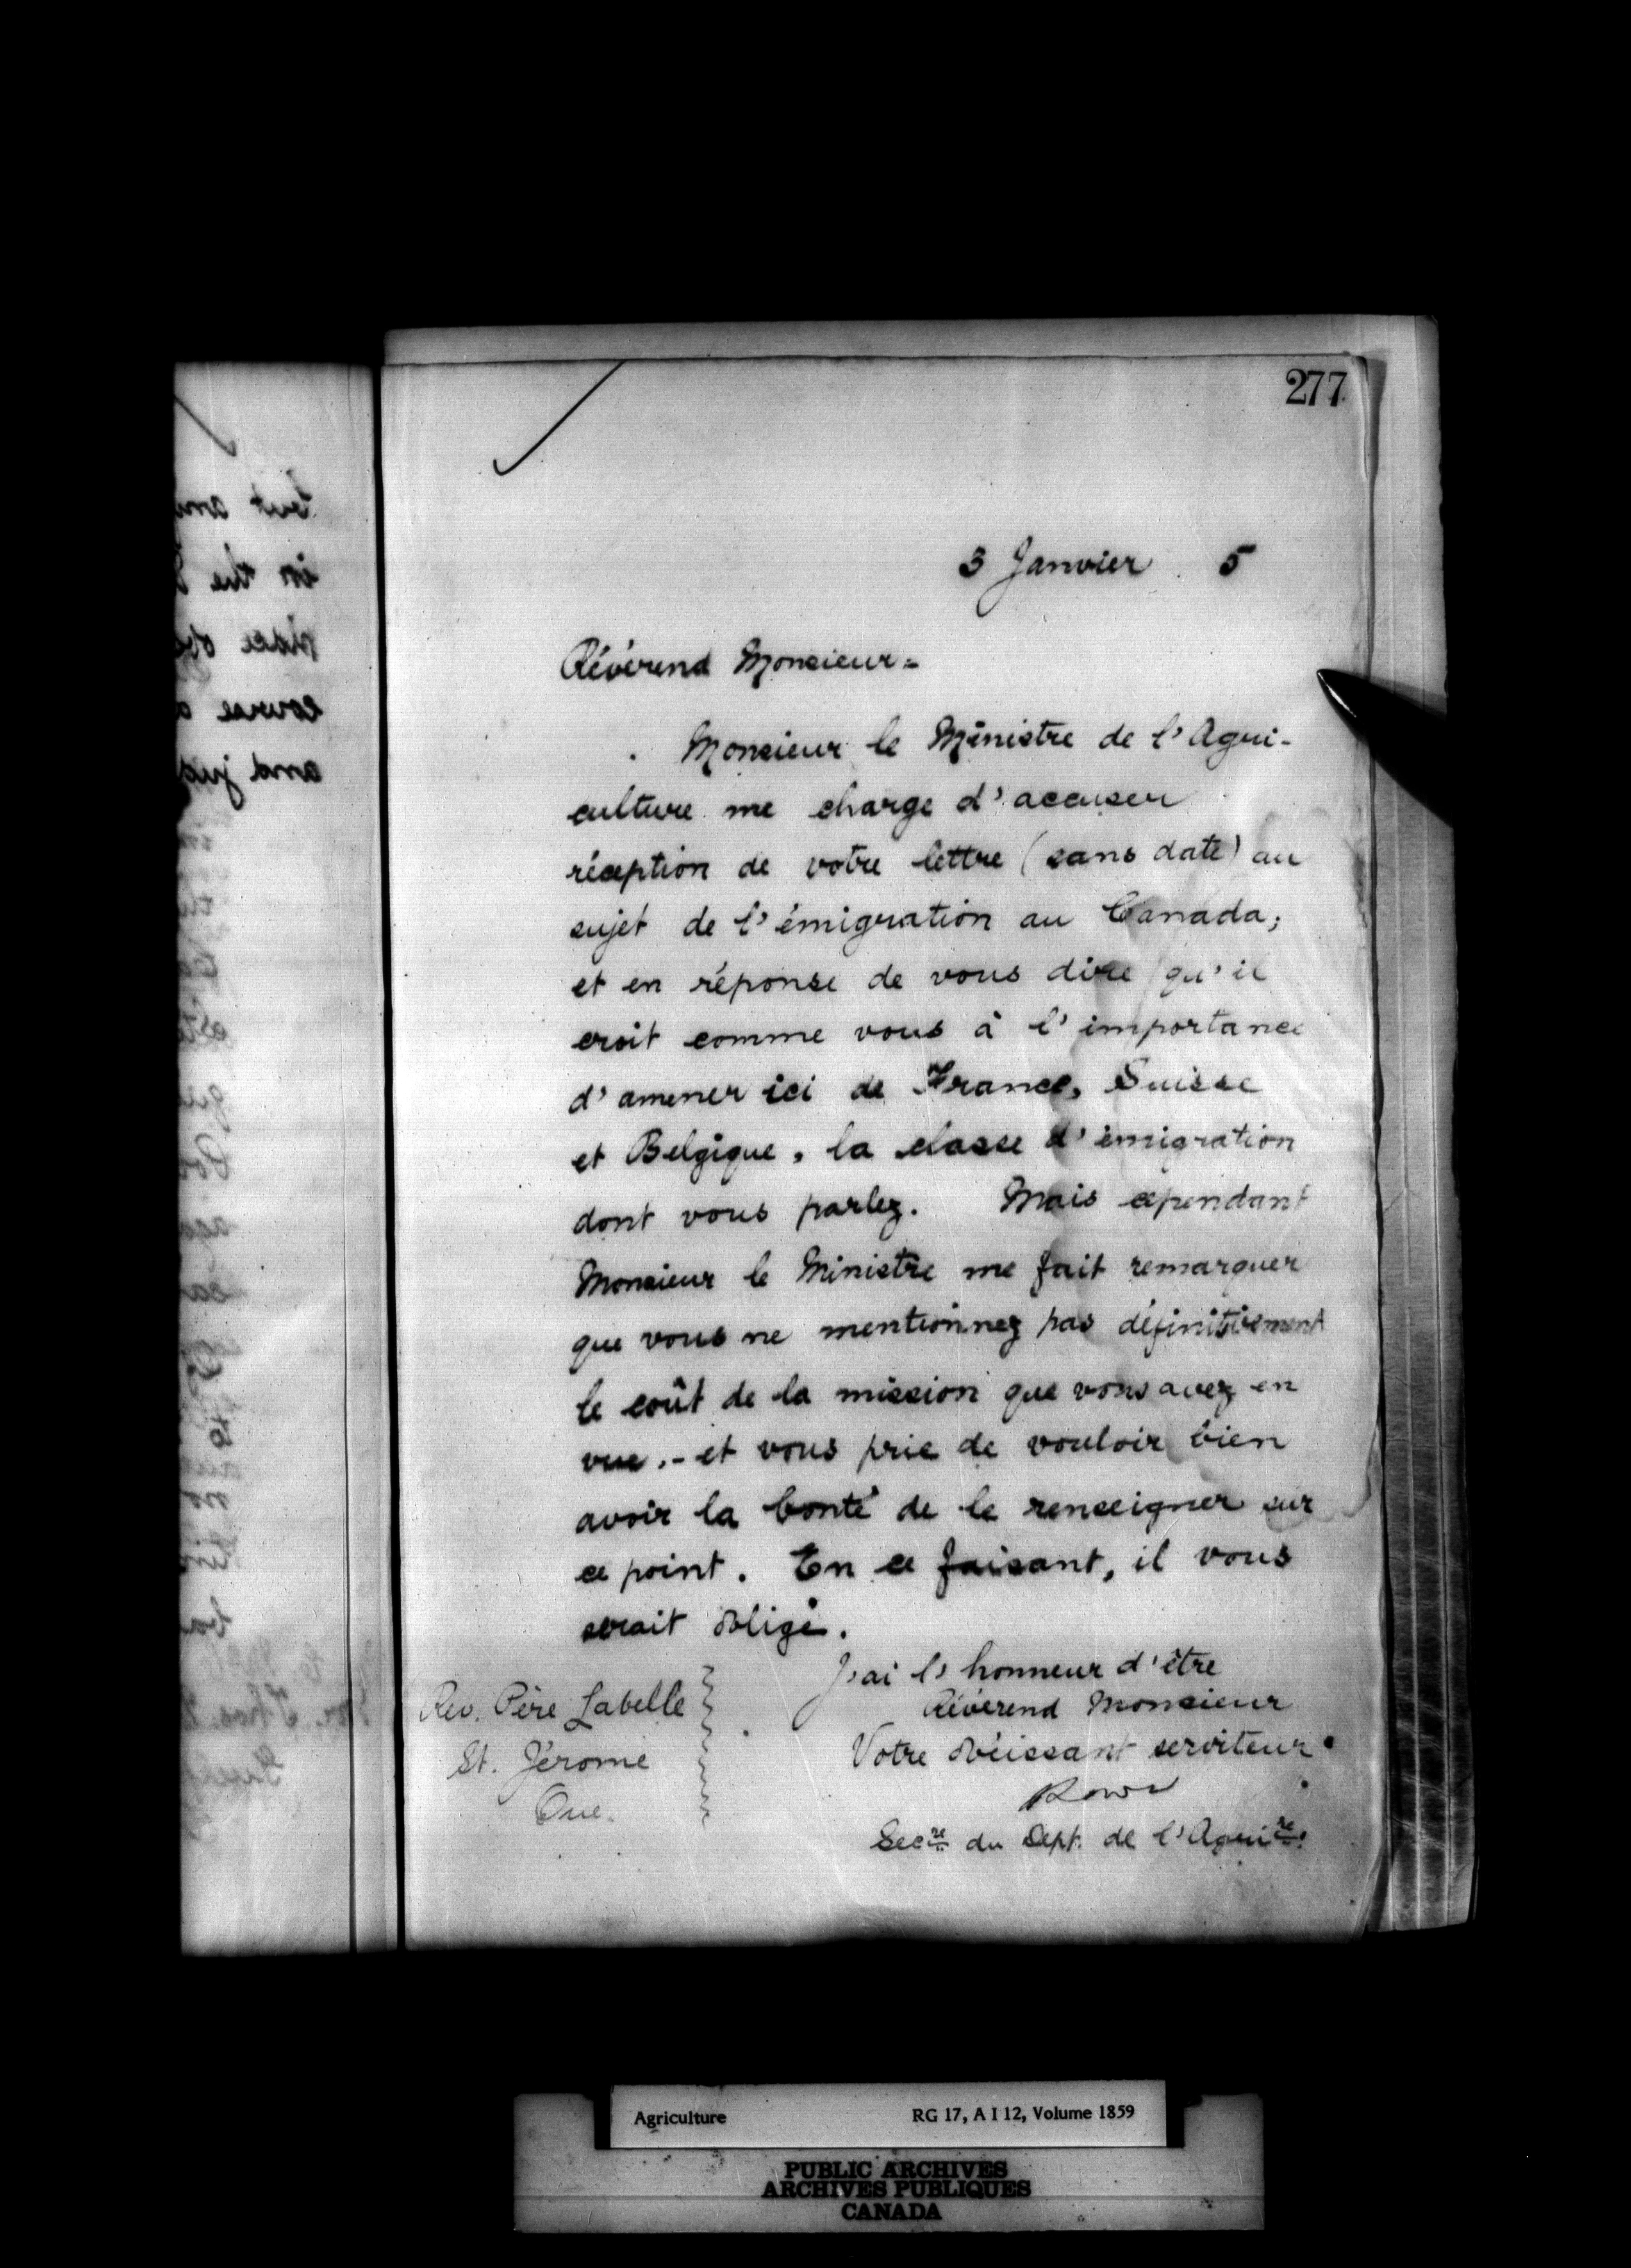 277
3 Janvier 5
Révérend Monsieur-
Monsieur le Ministre de l'Agri-
culture me charge d'accuser
réception de votre lettre (sans date) au
sujet de l'émigration au Canada;
et en réponse de vous dire qu'il
croit comme vous à l'importance
d'amener ici de France, Suisse
et Belgique, la classe d'émigration
dont vous parlez. Mais cependant
Monsieur le Ministre me fait remarquer
que vous ne mentionnez pas définitivement
le coût de la mission que vous avez en
vue.- et vous prie de vouloir bien
avoir la bonté de le renseigner sur
ce point. En ce faisant, il vous
serait obligé.
J'ai l'honneur d'être
Révérend Monsieur
Votre obéissant serviteur
Secre du Dept. de l'Agrire.
Rev. Père Labelle
St. Jérome
Que.
tent
in the
course
and
Agriculture RG 17, A I 12, Volume 1859
PUBLIC ARCHIVES
ARCHIVES PUBLIQUES
CANADA